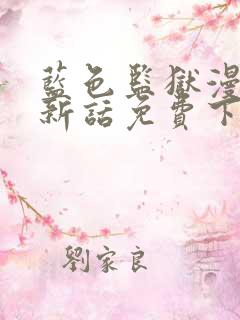 藍色監獄漫
新話免費下
劉家良